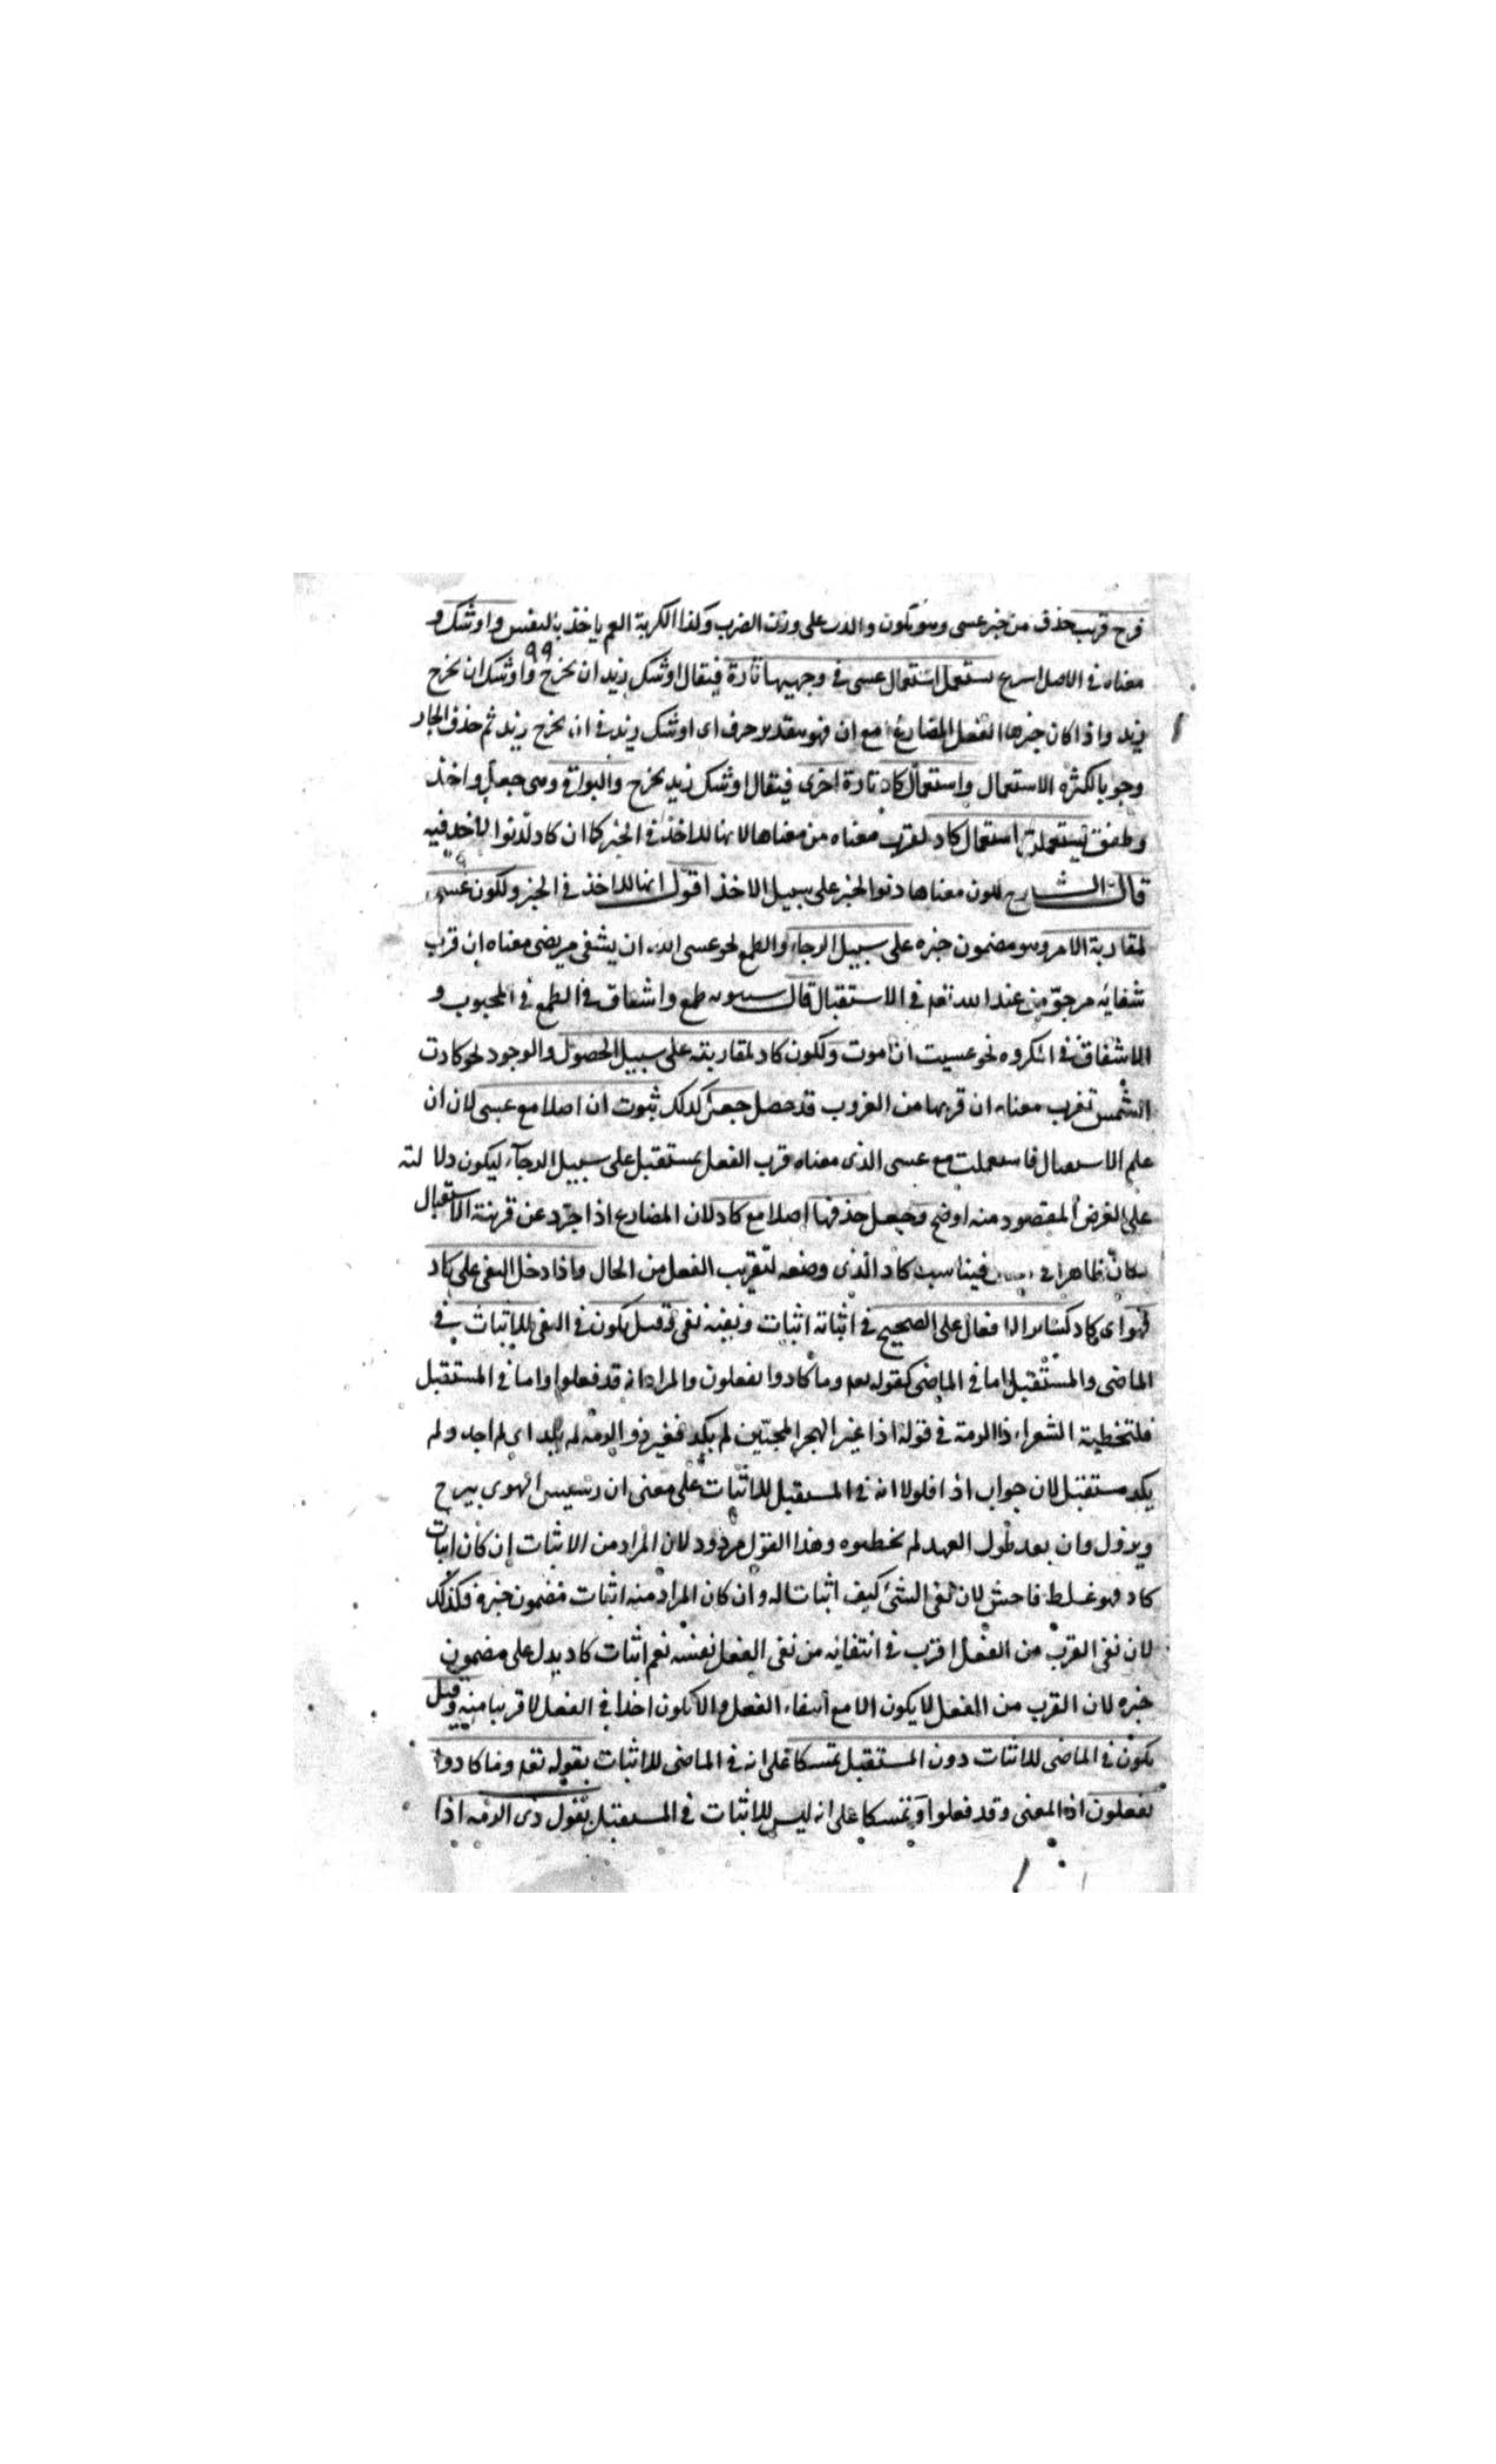 فرج قريب حذف من خبر عسى وهو يكون والكرب على وزن الضرب وكذا الكربة الغم ياخذ بالنفس واوشك و
٩٩
معناه في الاصل اسرع يستعمل استعمال عسى في وجهيها تارة فيقال اوشك زيد ان يخرج واوشك ان يخرج
زيد واذا كان خبرها الفعل المضارع مع ان فهو بتقدير حرف اى اوشك زيد في ان يخرج زيد ثم حذف الجار
وجوبا لكثرة الاستعمال واستعمال كاد تارة اخرى فيقال اوشك زيد يخرج والبواقي وهى جعل واخذ
وطفق يستعملن استعمال كاد لقرب معناه من معناها لانها للاخذ في الخبر كما ان كاد لدنوا الاخذ فيه
قال الشارح لكون معناها دنوا الخبر على سبيل الاخذ اقول انها للاخذ في الخبر ولكون عسى
لمقاربة الامر وهو مضمون خبره على سبيل الرجاء والطمع نحو عسى الله ان يشفى مريضى معناه ان قرب
شفائه مرجو من عند الله تعه في الاستقبال قال سيبويه طمع واشفاق فالطمع في المحبوب و
الاشفاق في المكروه نحو عسيت ان اموت ولكون كاد لمقاربته على سبيل الحصول والوجود نحو كادت
الشمس تغرب معناه ان قربها من الغروب قد حصل جعل كذلك ثبوت ان اصلا مع عسى لان ان
علم الاستقبال فاستعملت مع عسى الذى معناه قرب الفعل مستقبل على سبيل الرجاء ليكون دلا لته
على الغرض المقصود منه اوضح وجعل حذفها اصلا مع كاد لان المضارع اذا جرد عن قرينة الاستقبال
كان ظاهرا في فيناسب كاد الذى وضعه لتقريب الفعل من الحال واذا دخل النفى على كاد
فهو اى كاد كسائر الافعال على الصحيح في اثباته اثبات ونفيه نفى وقيل يكون في النفى للاثبات في
الماضى والمستقبل اما في الماضى كقوله تعه وما كادوا يفعلون والمراد انه قد فعلوا واما في المستقبل
فلتخطية الشعراء ذا الرمة في قوله اذا غير الهجر المحبين لم يكد فغير ذو الرمة لم يكد اى لم اجد ولم
يكد مستقبل لان جواب اذا فلولا انه في المستقبل للاثبات على معنى ان رسيس الهوى يبرح
ويزول وان بعد طول العهد لم يخطئوه وهذا القول مردود لان المراد من الاثبات ان كان اثبات
كاد فهو غلط فاحش لان نفى الشئ كيف اثبات له وان كان المراد منه اثبات مضمون خبره فكذلك
لان نفى القرب من الفعل اقرب في انتفائه من نفى الفعل نفسه نعم اثبات كاد يدل على مضمون
خبره لان القرب من الفعل لا يكون الا مع انتفاء الفعل والا يكون اخذا في الفعل لا قريبا منه وقيل
يكون في الماضى للاثبات دون المستقبل تمسكا على انه في الماضى للاثبات بقوله تعه وما كادوا
يفعلون اذ المعنى وقد فعلوا وتمسكا على انه ليس للاثبات في المستقبل بقول ذى الرمة اذا